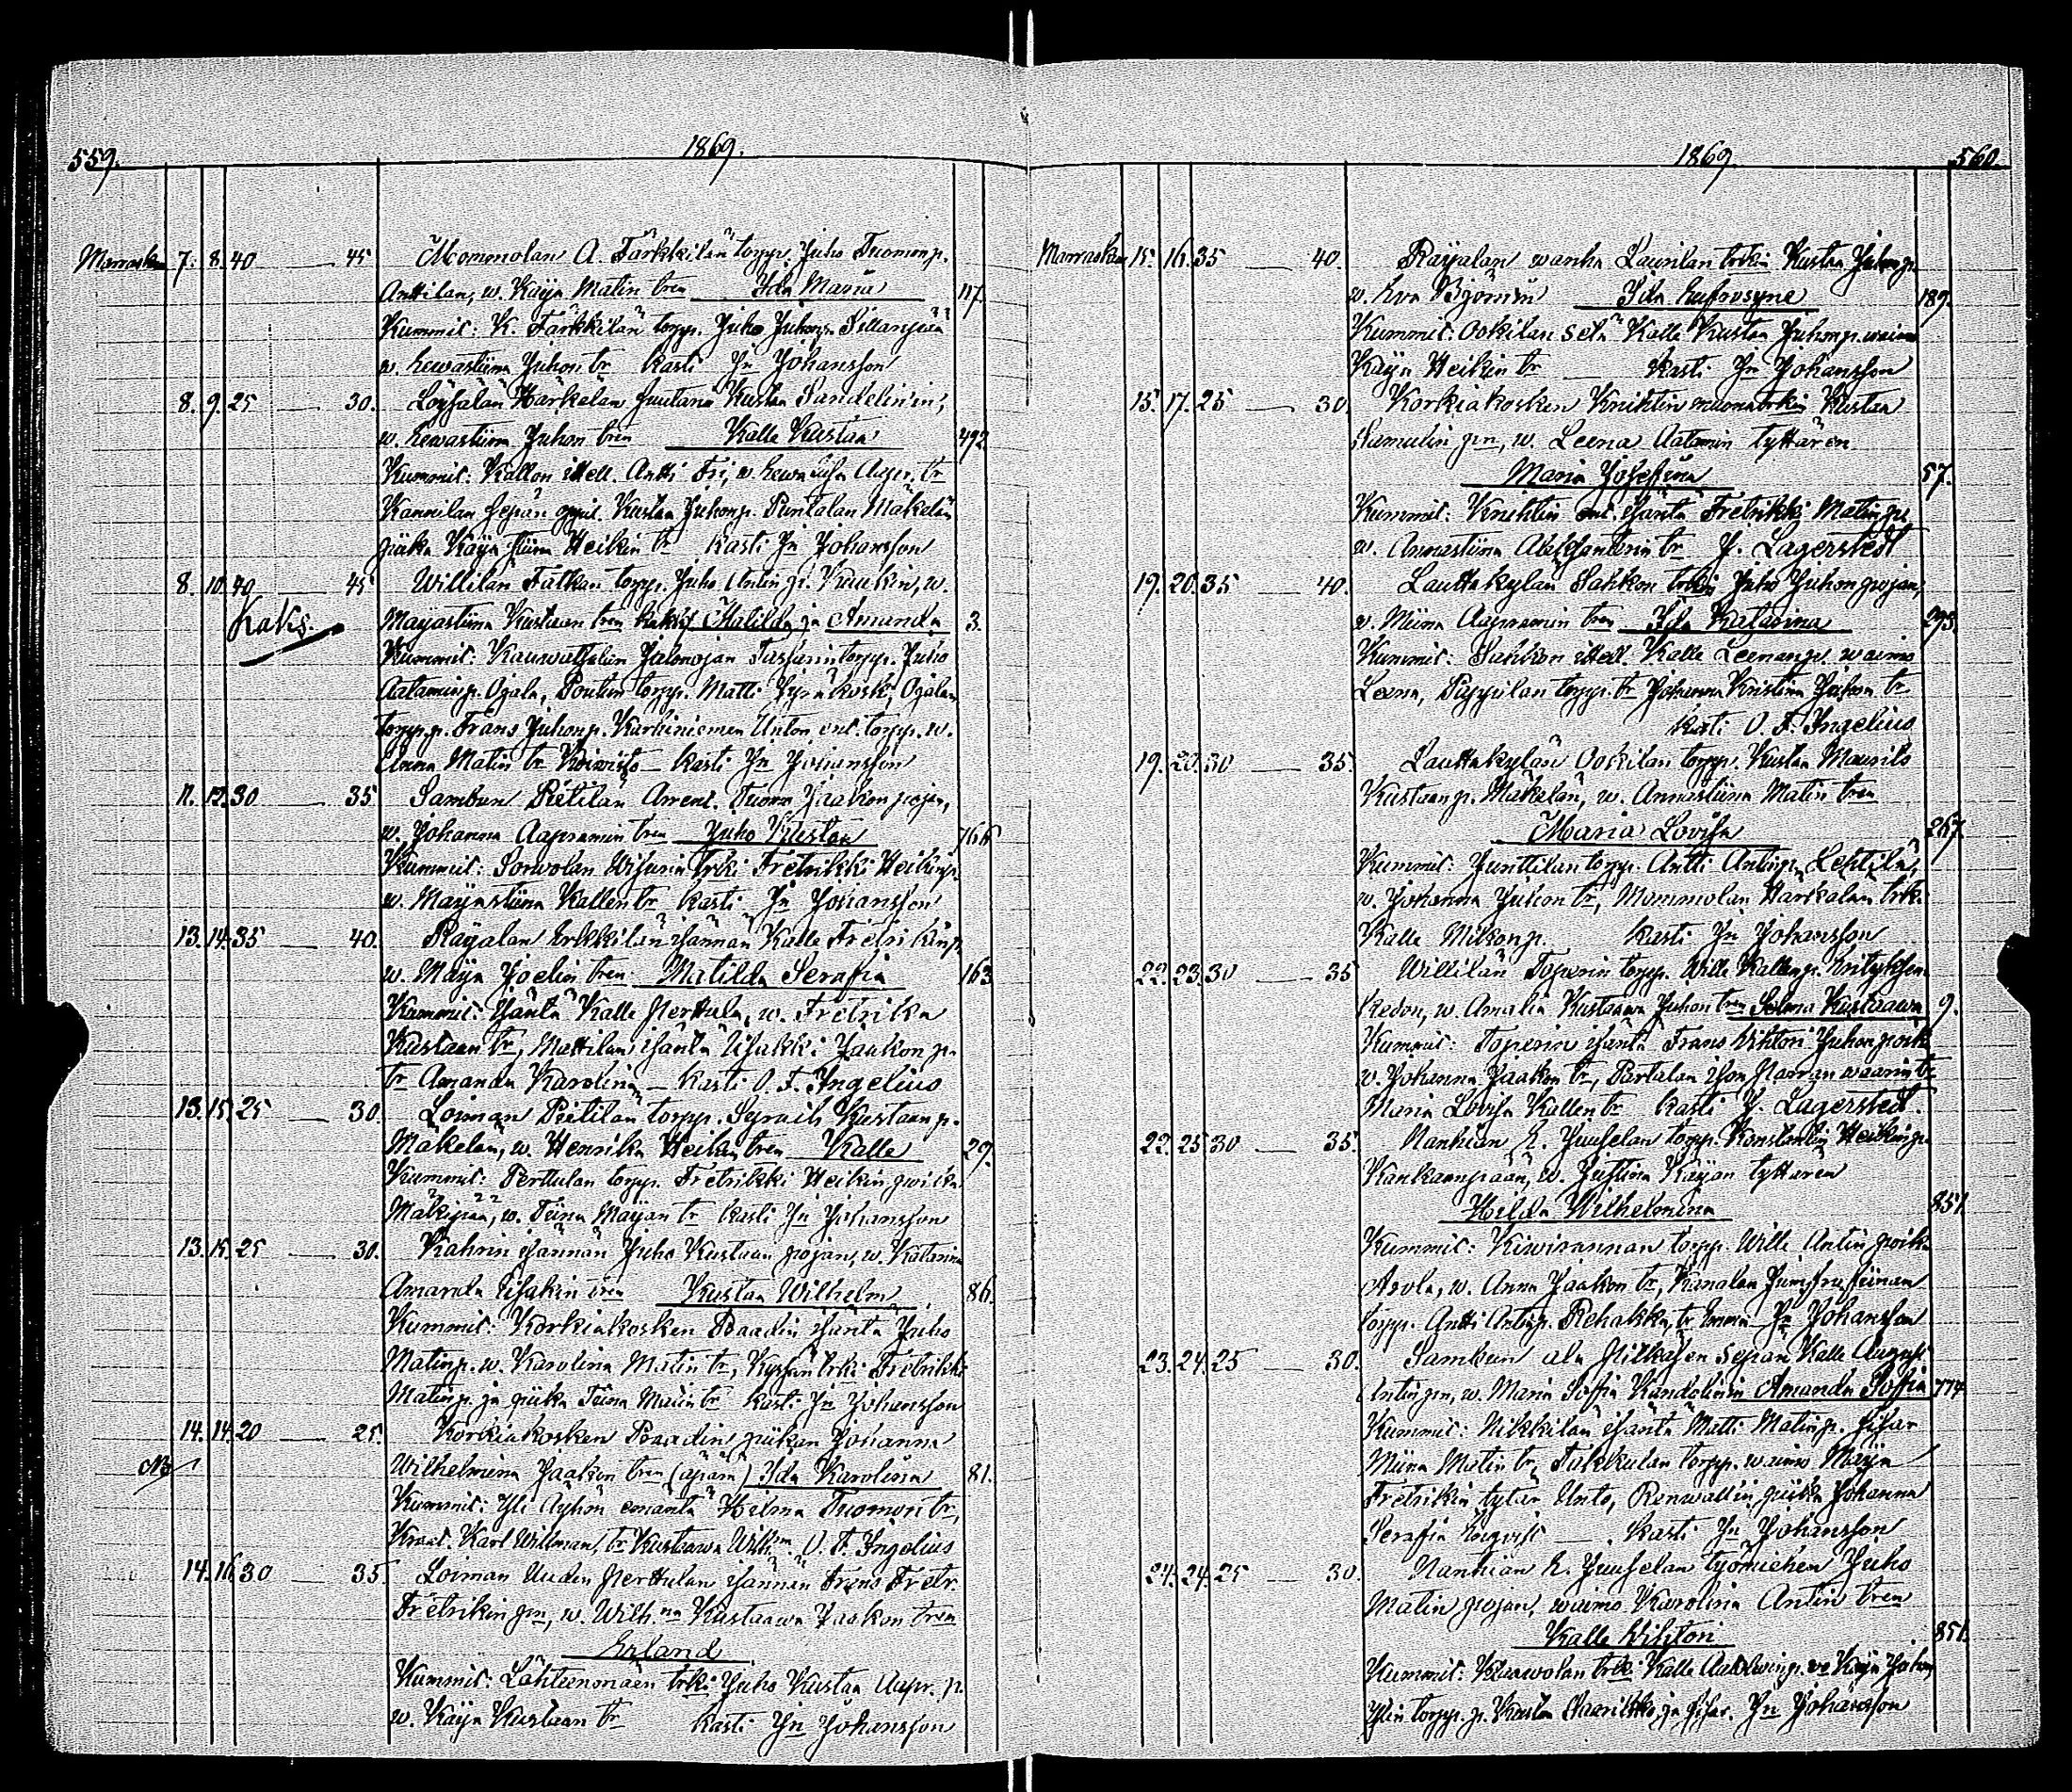 559. 1869.
Marraskuu 7. 8. 40 — 45 Mommolan A. Tärkkilän torpp. Juho Tuomonp.
Anttilan, w. Kaija Matin tren Ida Maria 117.
Kummit: K. Tärkkilän torpp. Juho Juhonp. Sillanpää
w. Eewastiina Juhon tr Kasti Jn Johansson
8. 9. 25 — 30. Löysälän Härkälän Kustan Sandelinin,
w. Eewastiina Juhon tren Kalle Kustaa 492.
Kummit: Kallon itsell. Antti Fri, w. Eewa Aapr. tr
Kannilan sepän oppil. Kustaa Juhonp. Punkalan Mäkelän
piika Kaija Stiina Heikin tr Kasti Jn Johansson
8. 10. 40 — 45 Willilän torpp. Juho Antinp. Kaukin, w.
Kaks.
Majastiina Kustaan tren kaksi Matilda ja Amanda 3.
Kummit: Kauwatsalan torpp. Juho
Aatamip. Ojala, torpp. Matti Hyräkoski, Ojalan
torpp.p. Frans Juhonp. Karhiniemen Unton ent. torpp. w.
Anna Matin tr Koiwisto — Kasti Jn Johansson
11. 12. 30 — 35 Sammun Pietilän Arrent. Tuomo Jaakon pojan,
w. Johanna Aapramin tren Juho Kustaa 766
Kummit: Sorwolan trki Fretrikki Heikinp.
w. Maijastiina Kallen tr Kasti Jn Johansson
13. 14. 35 — 40. Raijalan Erkkilän isännän Kalle Fretrikinp.
w. Maija Joelin tren Matilda Serafia 163
Kummit: Isäntä Kalle Perttula, w. Fretrika
Kustaan tr, Mattilan isäntä Iisakki Jaakon p.
tr Amanda Karolina — Kasti O. F. Ingelius
13. 15. 25 — 30. Loiman Pietilän torpp. Kustaan p.
Mäkelän, w. Henrika Heikin tren Kalle 29.
Kummit: Perttulan torpp. Fretrikki Heikin poika
Mäkipää, w. Tiina Maijan tr Kasti Jn Johansson
13. 15. 25 — 30. Kahrin isännän Juho Kustaan pojan, w. Katarina
Amanda Iisakin tren Kustaa Wilhelm 86.
Kummit: Korkiakosken Praadin isäntä Juho
Matinp. w. Karolina Matin tr, trki Fretrikki
Matinp. ja piika Tiina Matin tr Kasti Jn Johansson
14. 14. 20 — 25. Korkiakosken Praadin piikan Johanna
Wilhelmina Jaakon tren (äpärä) Ida Karolina 81.
Kummit: Yli Äyhön emäntä Hilma Tuomon tr,
Karl Willman, tr Kustaawa Wilhm O. F. Ingelius
14. 16. 30 — 35. Loiman Uuden Perttulan isännän Frans Fretr.
Fretrikin pn, w. Wilh.na Kustaawa Jaakon tren
Erland
Kummit: Lähteenmäen trki Juho Kustaa Aapr. p.
w. Kaija Kustaan tr Kasti Jn Johansson
1869 560.
Marraskuu 15. 16. 35 — 40. Raijalan wanha Laurilan trkin Kustaa Juhonp.
w. Eva Björnin Ida Eufrosyne 189.
Kummit: Ookilan setä Kalle Kustaa Juhonp. waimo
Kaija Heikin tr — Kasti Jn Johansson
15. 17. 25 — 30. Korkiakosken Knihtin muonatrkin Kustaa
Samulin pn, w. Leena Aatamin tyttären
Maria Josefina 57.
Kummit: Knihtin ent. isäntä Fretrikki Matinp.
w. Annastiina Aleksanterin tr J. Lagerstedt
19. 20. 35 — 40. Lauttakylän Sahkon trkin Juho Juhon pojan,
w. Miina Aapramin tren Ida Katarina 293.
Kummit: Sahkon itsell. Kalle Leenanp. waimo
Leena, Pappilan torpp. tr Johanna Kristina Juhon tr
Kasti O. F. Ingelius
19. 20. 30 — 35. Lauttakylän Ookilan torpp. Kustaa Maurits
Kustaanp. Mäkelän, w. Annastiina Matin tren
Maria Lovisa 267.
Kummit: Junttilan torpp. Antti Antinp. Lehtilä,
w. Johanna Juhon tr, Mommolan Härkälän trki
Kalle Mikonp. Kasti Jn Johansson
22. 23. 30 — 35 Willilän Toperin torpp. Wille Kallenp.
Kedon, w. Amalia Kustaawa Juhon tren Selma Kustaawa 9.
Kummit: Toperin isäntä Frans Wihtori Juhon poika
w. Johanna Jaakon tr, Partalan Ison
Maria Lovisa Kallen tr Kasti J. Lagerstedt.
22. 25. 30 — 35. Nanhian E. Juuselan torpp. Konstantin Heikinp.
Kankaanpään, w. Justiina Kaijan tyttären
Hilda Wilhelmina 851.
Kummit: Kiwirannan torpp. Wille Antin poika
Arola, w. Anna Jaakon tr,
torpp. Antti Antinp. Rehakka, tr Emma Jn Johansson
23. 24. 25 — 30. Sammun ala Pilkäsen sepän Kalle August
Antin pn, w. Maria Sofia Kandelinin Amanda Soffia 774.
Kummit: Nikkilän isäntä Matti Matinp. sisar
Miina Matin tr, torpp. waimo Maija
Fretrikin tytär Unto, Renwallin piika Johanna
Serafia — Kasti Jn Johansson
24. 24. 25 — 30. Nanhian E. Juuselan työmiehen Juho
Matin pojan, waimo Karolina Antin tren
Kalle Wihtori 851.
Kummit: trki Kalle w Kaija Juhon
torpp. p. Kustaa ja sisar. Jn Johansson